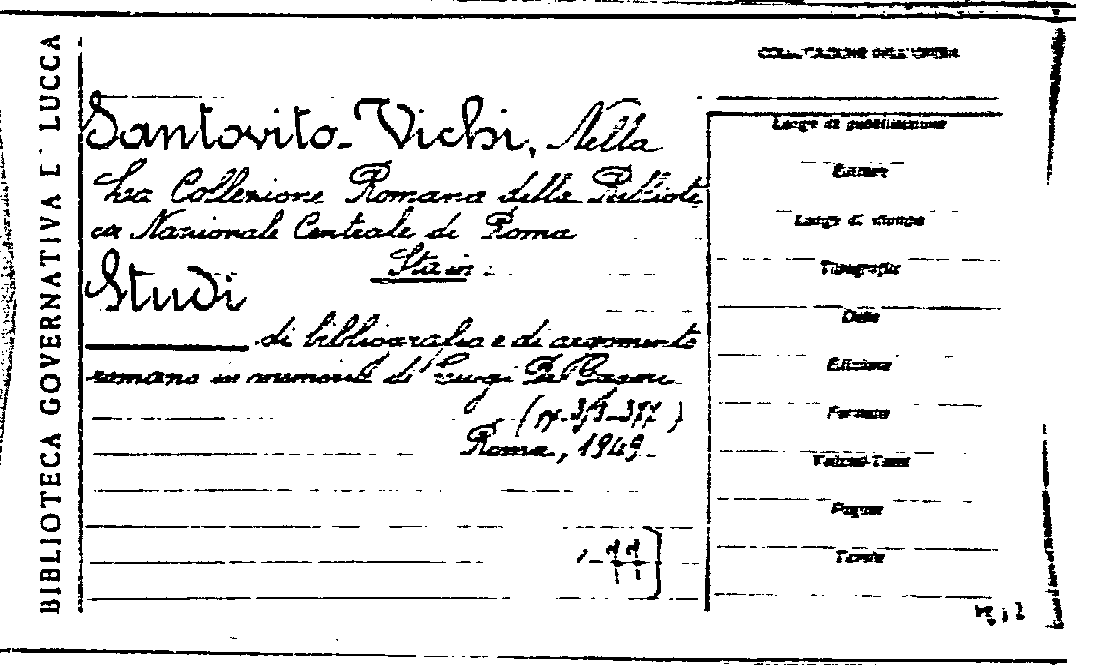 BIBLIOTECA GOVERNATIVA DI LUCCA
COLLOCAZIONE DELL'OPERA
Santovito-Vichi, Nella
La Collezione Romana della Bibliote
ca Nazionale Centrale di Roma
Sta in:
Studi
di bibliografia e di argomento
romano in memoria di Luigi De Gregori
Roma, 1949
Luogo di pubblicazione
Editore
Luogo di stampa
Tipografia
Data
Edizione
Formato
Volumi-Tomi
Pagine
Tavole